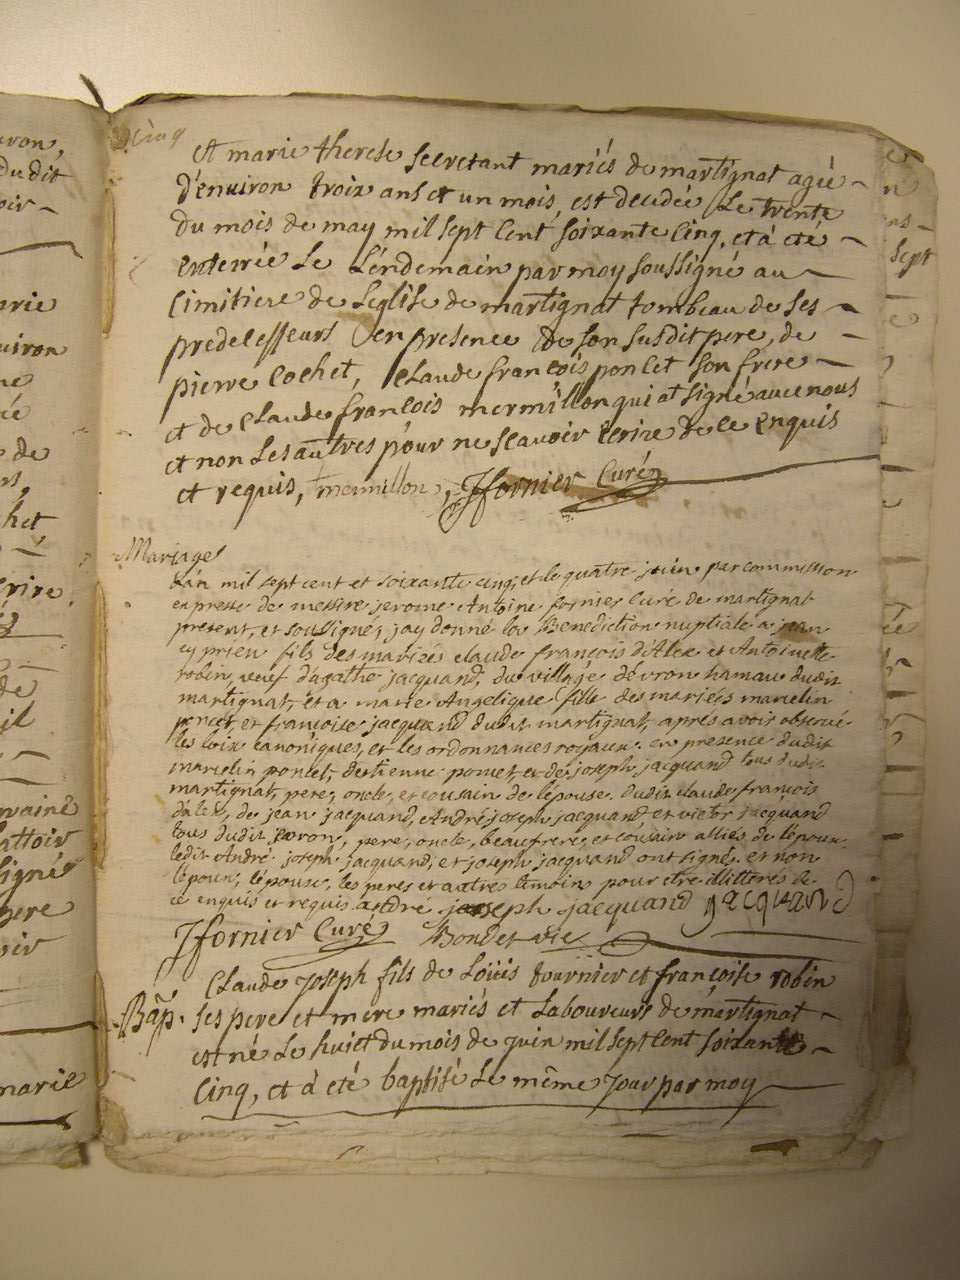 cinq
et marie therese secretant mariés de martignat agée
d'environ troix ans et un mois est decedée Le trente
du mois de may mil sept cent soixante cinq, et à eté
enterrée Le Lendemain par moy soussigné au
cimitiere de Leglise de martignat tombeau de ses
predecesseurs en presence de son susdit pere, de
pierre cochet, claude francois poncet son frere
et de claude francois mermillon qui at signé avec nous
et non Les autres pour ne scavoir ecrire de ce enquis
et requis, mermillon, Jfornier Curé
Mariage
L'an mil sept cent et soixante cinq, et le quatre juin par commission
expresse de messire jerome Antoine fornier curé de martignat
present, et soussigné, jay donné la Benediction nuptiale a jean
cyprien fils des mariés claude françois d'Alex et Antoinette
robin, veuf d'agathe jacquand, du village d'évron hamau dudit
martignat, et a marie Angelique fille des mariés marcelin
poncet, et françoise jacquand dudit martignat, aprés avoir observé
les loix canoniques, et les ordonnances royaux. en presence dudit
marcelin poncet, d'estienne poncet, et de joseph jacquand tous dudit
martignat, pere, oncle, et cousin de l'épouse. dudit claude françois
d'alex, de jean jacquand, André joseph jacquand, et victor jacquand
tous dudit evron, pere, oncle, beaufrere, et cousin alliés de lépoux
ledit André joseph jacquand, et joseph jacquand ont signé. et non
lépoux, lépouse, les peres et autres temoins pour etre illitterés de
ce enquis et requis. andré joseph jacquand jacquand
Jfornier Curé Bondet vic
Claude Joseph fils de Loüis tournier et françoise robin
Bap. ses pere et mere mariés et Laboureurs de martignat
est né Le huict du mois de juin mil sept cent soixante
cinq, et à eté baptisé Le même jour par moy